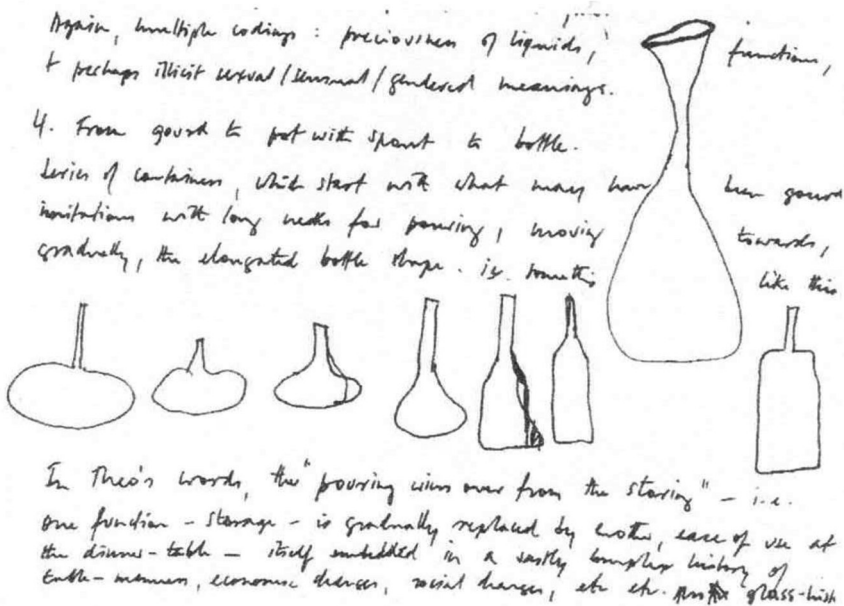 Again, multiple codings : preciousness of liquids, functions,
+ perhaps illicit sexual/sensual/gendered meanings.
4. From gourd to pot with spout to bottle.
Series of containers, which start with what may have been gourd
imitations with long necks for pouring, moving towards,
gradually, the elongated bottle shape. ie. something like this
In Theo's words, the "pouring wins over from the storing" – i.e.
one function – storage – is gradually replaced by another, ease of use at
the dinner-table – itself embedded in a vastly complex history of
table-manners, economic changes, social changes, etc etc. glass-